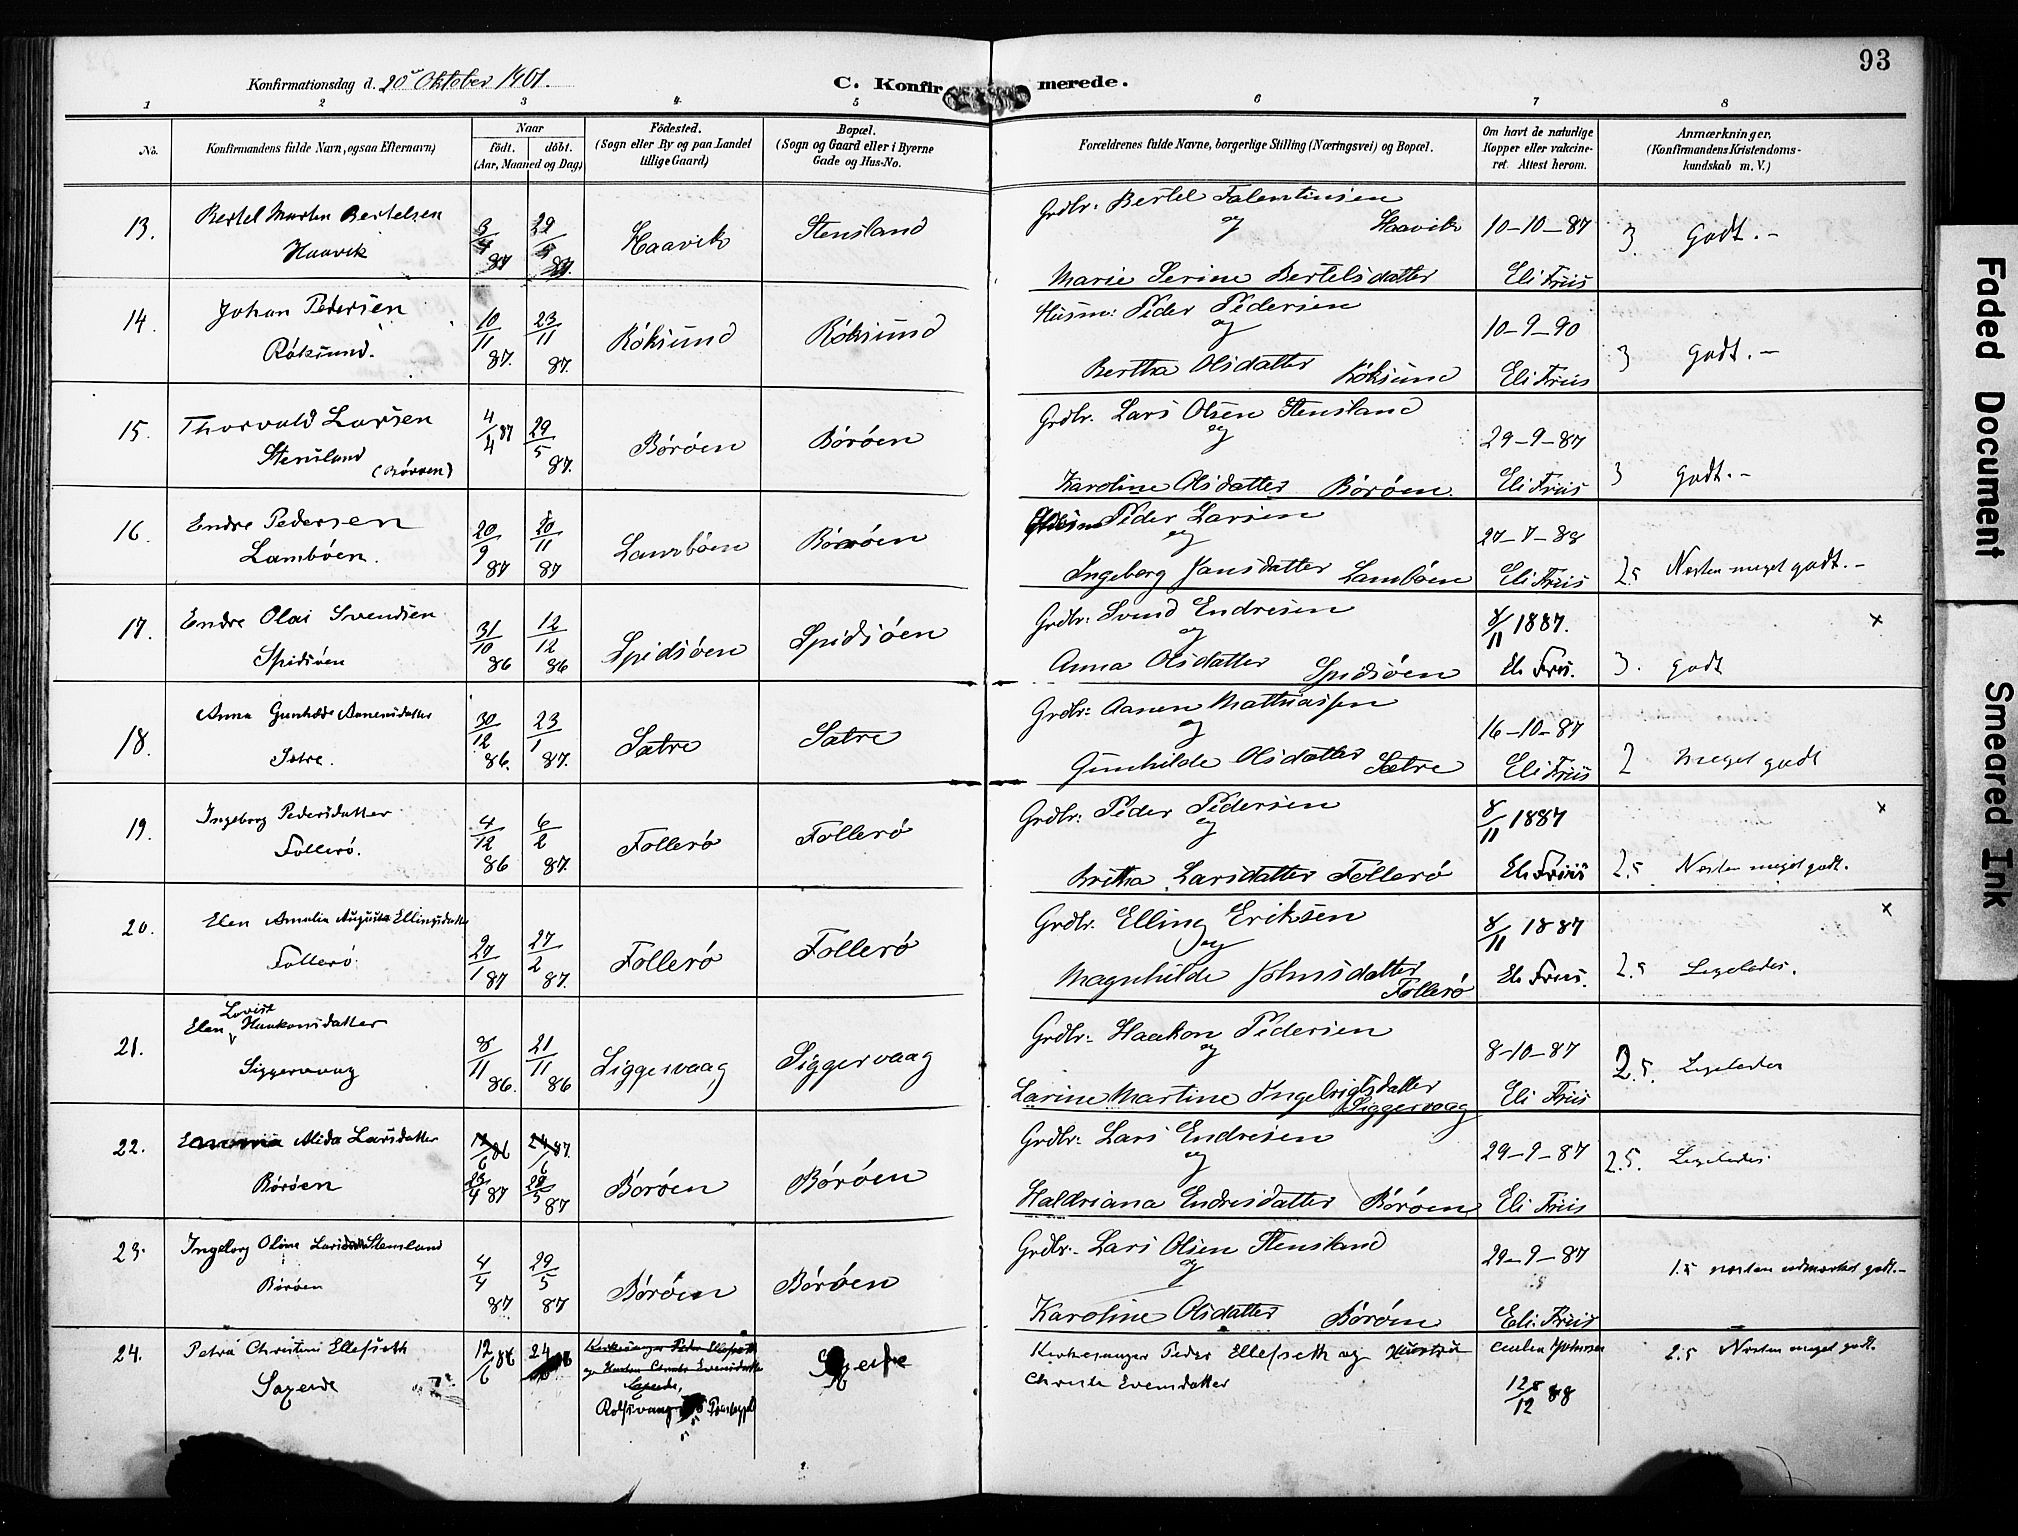 93
Konfirmationsdag d. 20 Oktober 1901.
C. Konfirmerede.
1 2 3 4 5 6 7 8
No.
Konfirmandens fulde Navn, ogsaa Efternavn)
Naar
født. døbt.
(Aar, Maaned og Dag)
Fødested.
(Sogn eller By og paa Landet
tillige Gaard)
Bopæl.
(Sogn og Gaard eller i Byerne
Gade og Hus-No.
Forældrenes fulde Navne, borgerlige Stilling (Næringsvei) og Bopæl.
Om havt de naturlige
Kopper eller vakcine-
ret. Attest herom.
Anmærkninger,
(Konfirmandens Kristendoms-
kundskab m. V.)
13. Bertel Martin Bertelsen
Haavik
87
Haavik
Stensland
Grdbr: Bertel Falentinsen
og Haavik
Marie Serine Bertelsdatter
10-10-87
Eli Friis
3. Godt.-
14. Johan Pedersen
Røksund.
10/11 87. 23/11 87.
Røksund
Røksund
Husm: Peder Pedersen
og
Bertha Olsdatter Røksund
10-9-90
Eli Friis
3 Godt.-
15. Thorvald Larsen
Stensland (Børøen)
4/4 87 29/5 87.
Børøen
Børøen
Grdbr. Lars Olsen Stensland
og
Karoline Olsdatter Børøen.
29-9-87
Eli Friis
3 godt.-
16. Endre Pedersen
Lambøen.
20/9 87 20/11 87
Lambøen
Børøen
Peder Larsen
og
Ingeborg Jansdatter Lambøen
27-7-88
Eli Friis
2.5 Næsten meget godt.-
17. Endre Olai Svendsen
Spidsøen
31/10 86 12/12 86
Spidsøen
Spidsøen
Grdbr: Svend Endresen
og
Anna Olsdatter Spidsøen
8/11 1887.
Eli Friis.
3. godt
x
18. Anna Gunhilde Aanensdatter
Sætre.
30/12 86. 23/1 87.
Sætre
Sætre
Grdbr: Aanen Mathiassen
og
Gunhilde Olsdatter Sætre
16-10-87
Eli Friis
2 meget godt
19. Ingeborg Pedersdatter
Follerø.
4/12 86 6/2 87.
Follerø
Follerø
Grdbr: Peder Pedersen
og
Britha Larsdatter Follerø
8/11 1887
Eli Friis
2.5 Næsten meget godt.
x
20. Elen Amalia Augusta Ellingsdatter
Follerø
27/1 87 27/2 87.
Follerø
Follerø
Grdbr. Elling Eriksen
og
Magnhilde Johnsdatter
Follerø
8/11 1887
Eli Friis.
2.5 Ligeledes.
x
21. Elen Lovise Haakonsdatter
Siggervaag
8/11 86. 21/11 86
Siggervaag
Siggervaag
Grdbr: Haakon Pedersen
og
Larine Martine Ingebrigtsdatter
Siggervaag
8-10-87
Eli Friis
2.5. Ligeledes
22. Alida Larsdatter
Børøen
12/6 86 24/6 87.
23/4 87 29/5 87
Børøen
Børøen
Grdbr: Lars Endresen
og
Haldriana Endresdatter Børøen
29-9-87
Eli Friis
2.5. Ligeledes.
23. Ingeborg Oline Larsdatter Stensland
Børøen
4/4 87 29/5 87
Børøen
Børøen
Grdbr. Lars Olsen Stensland
og
Karoline Olsdatter Børøen
29-9-87
Eli Friis
1.5 næsten udmærket godt.-
24. Petra Christine Ellefseth
12/6 86 24
Kirkesanger Peder Ellefseth
Kirkesanger Peder Ellefseth og Hustru
Svensdatter
12/12 88
2.5 Næsten meget godt.
Faded Document
Smeared Ink